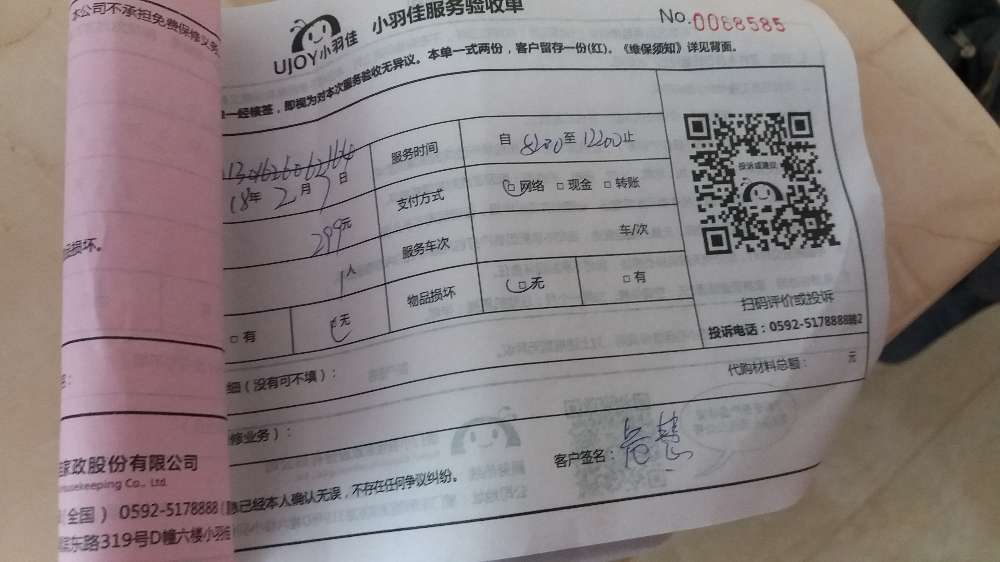 本公司不承担免费保修义务
UJOY小羽佳
小羽佳服务验收单
No.0068585
一经核签，即视为对本次服务验收无异议。本单一式两份，客户留存一份(红)。《维保须知》详见背面。
服务时间 自 8:00 至 12:00 止
18年 2月 7日
支付方式 □网络 □现金 □转账
299元
服务车次 车/次
1人
物品损坏 □无 □有
□有 □无
投诉或建议
扫码评价或投诉
投诉电话：0592-5178888
品损坏。
细（没有可不填）：
代购材料总额： 元
修业务）：
客户签名：
家政股份有限公司
housekeeping Co., Ltd.
(全国） 0592-5178888
息已经本人确认无误，不存在任何争议纠纷。
东路319号D幢六楼小羽佳